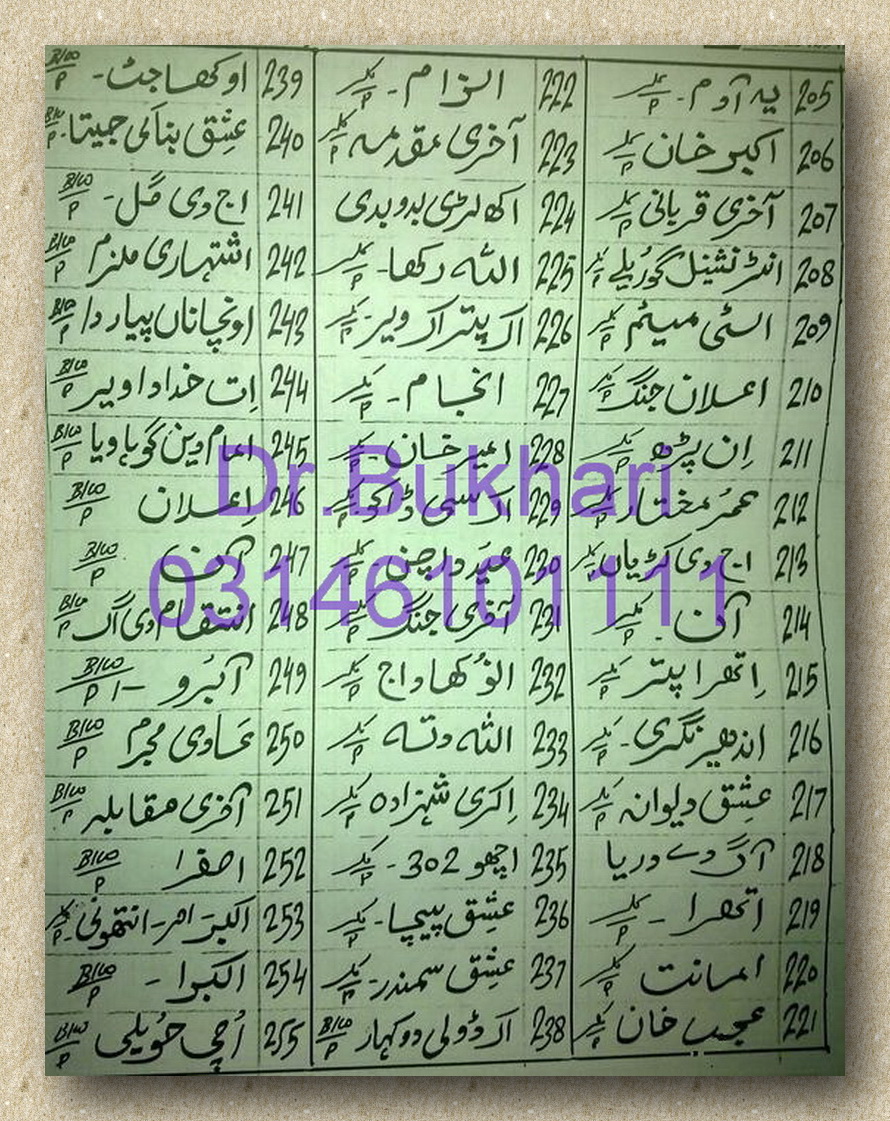 205 یہ آدم - کلر/P
206 اکبر خان کلر/P
207 آخری قربانی کلر/P
208 انٹرنیشنل گوریلے کلر/P
209 اسٹی میٹم کلر/P
210 اعلان جنگ کلر/P
211 اِن پڑھ کلر/P
212 عمر مختار کلر/P
213 اج دی کڑیاں کلر/P
214 آن - کلر/P
215 اِتھرا پتر کلر/P
216 اندھیر نگری - کلر/P
217 عِشق دیوانہ کلر/P
218 آگ دے دریا
219 اتھرا - کلر/P
220 امانت کلر/P
221 عجب خان کلر/P
222 الزام - کلر/P
223 آخری مقدمہ کلر/P
224 اکھ لڑی بدو بدی
225 اللہ رکھا - کلر
226 اک پتر اک ویر - کلر/P
227 انجام - کلر/P
228 امیر خان - کلر/P
229 اک سی ڈاکو کلر/P
230 عید دا چن - کلر/P
231 آخری جنگ کلر/P
232 انوکھا داج کلر/P
233 اللہ دتہ کلر/P
234 اِکری شہزادہ کلر/P
235 اچھو 302 - کلر/P
236 عِشق پیچا - کلر/P
237 عِشق سمندر - کلر/P
238 اک ڈولی دو کہار B/W/P
239 اوکھا جٹ - B/W/P
240 عِشق بنا کی جینا - B/W/P
241 اج دی گل - B/W/P
242 اشتہاری ملزم B/W/P
243 اونچا ناں پیار دا B/W/P
244 اِت خدا دا ویر B/W/P
245 امام دین گوہاویا B/W/P
246 اِعلان B/W/P
247 آن B/W/P
248 انتقام دی اگ B/W/P
249 آبرو - B/W/P 1
250 عادی مجرم B/W/P
251 آخری مقابلہ B/W/P
252 اصغرا B/W/P
253 اکبر - امر - انتھونی - کلر/P
254 اکبرا - B/W/P
255 اُچی حویلی B/W/P
Dr.Bukhari
03146101111